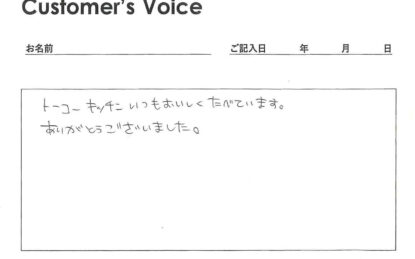 Customer's Voice
お名前 ご記入日 年 月 日
トーコーキッチンいつもおいしくたべています。
ありがとうございました。